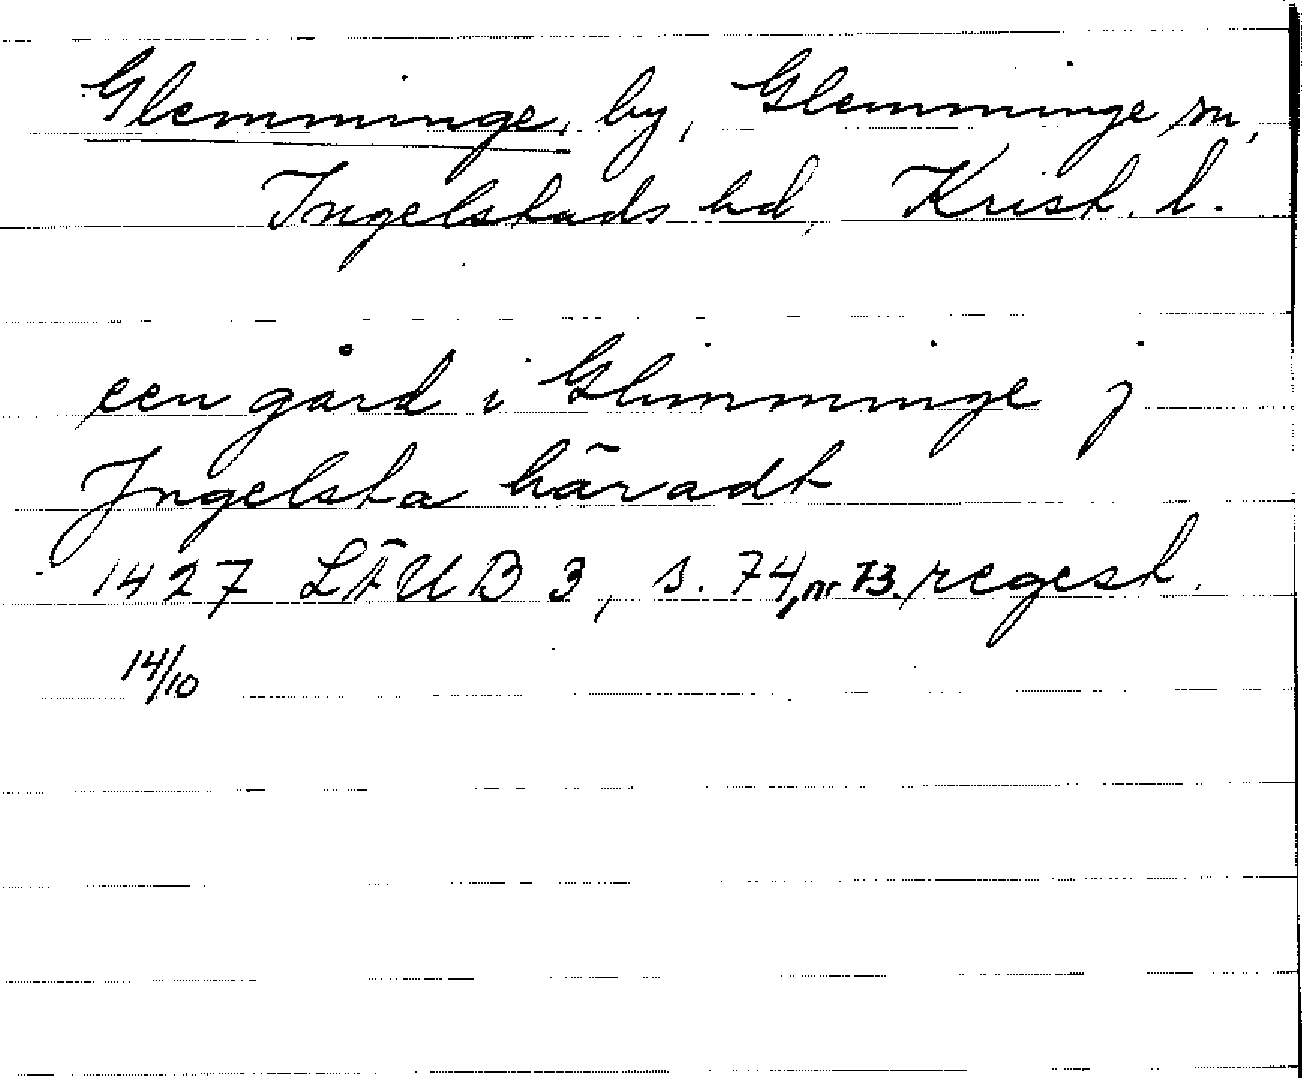 Glemminge, by, Glemminge sn,
Ingelstads hd, Krist. l.
een gård i Glimminge j
Jngelsta häradt
1427 LÄUB 3, s. 74, nr 73. regest.
14/10